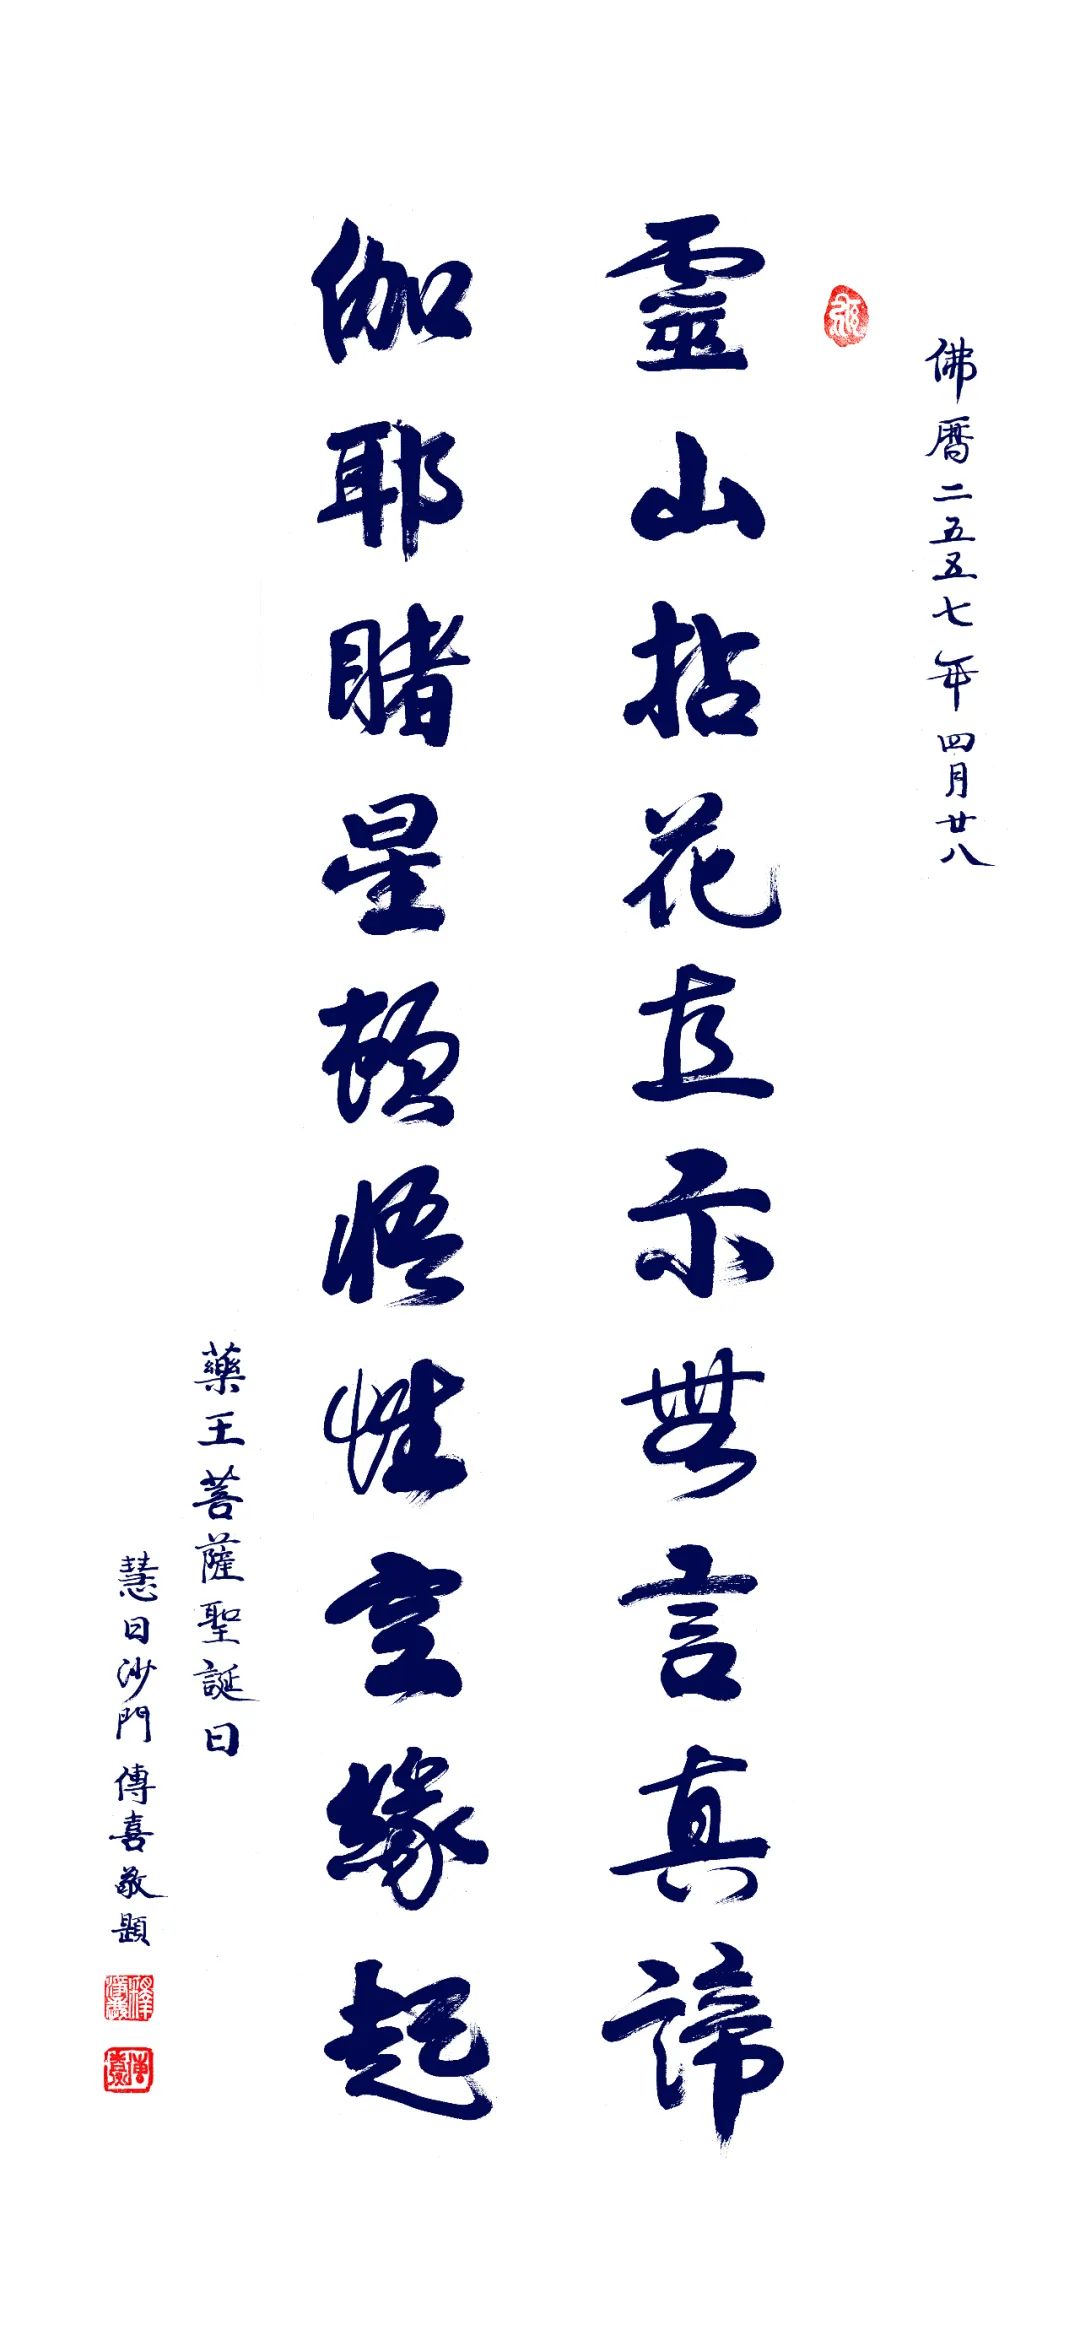 佛曆二五五七年四月廿八
靈山拈花直示無言真諦
伽耶睹星頓悟性空緣起
藥王菩薩聖誕日
慧日沙門傳喜敬題